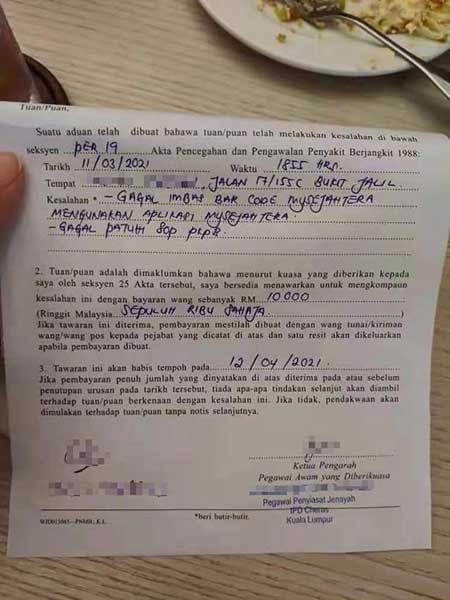 Tuan/Puan,
Suatu aduan telah dibuat bahawa tuan/puan telah melakukan kesalahan di bawah
seksyen PER 19 Akta Pencegahan dan Pengawalan Penyakit Berjangkit 1988:
Tarikh 11/03/2021 Waktu 1855 HRS.
Tempat JALAN 17/155C BUKIT JALIL
Kesalahan * - GAGAL IMBAS BAR CODE MYSEJAHTERA
MENGUNAKAN APLIKASI MYSEJAHTERA.
- GAGAL PATUHI SOP PKPB.
2. Tuan/puan adalah dimaklumkan bahawa menurut kuasa yang diberikan kepada
saya oleh seksyen 25 Akta tersebut, saya bersedia menawarkan untuk mengkompaun
kesalahan ini dengan bayaran wang sebanyak RM 10 000
(Ringgit Malaysia SEPULUH RIBU SAHAJA)
Jika tawaran ini diterima, pembayaran mestilah dibuat dengan wang tunai/kiriman
wang/wang pos kepada pejabat yang dicatat di atas dan satu resit akan dikeluarkan
apabila pembayaran dibuat.
3. Tawaran ini akan habis tempoh pada 12/04/2021.
Jika pembayaran penuh jumlah yang dinyatakan di atas diterima pada atau sebelum
penutupan urusan pada tarikh tersebut, tiada apa-apa tindakan selanjut akan diambil
terhadap tuan/puan berkenaan dengan kesalahan ini. Jika tidak, pendakwaan akan
dimulakan terhadap tuan/puan tanpa notis selanjutnya.
Ketua Pengarah
Pegawai Awam yang Diberikuasa
Pegawai Penyiasat Jenayah
IPD Cheras
Kuala Lumpur
*beri butir-butir.